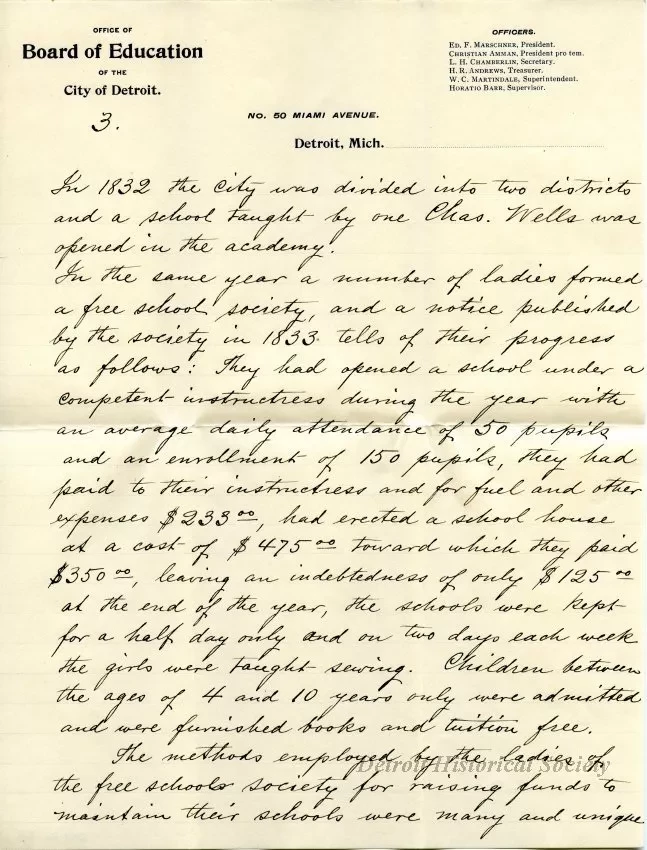 OFFICE OF
Board of Education
OF THE
City of Detroit.
3.
OFFICERS.
ED. F. MARSCHNER, President.
CHRISTIAN AMMAN, President pro tem.
L. H. CHAMBERLIN, Secretary.
H. R. ANDREWS, Treasurer.
W. C. MARTINDALE, Superintendent.
HORATIO BARR, Supervisor.
NO. 50 MIAMI AVENUE.
Detroit, Mich.
In 1832 the city was divided into two districts
and a school taught by one Chas. Wells was
opened in the academy.
In the same year a number of ladies formed
a free school society, and a notice published
by the society in 1833 tells of their progress
as follows: They had opened a school under a
competent instructress during the year with
an average daily attendance of 50 pupils
and an enrollment of 150 pupils, they had
paid to their instructress and for fuel and other
expenses $233 00, had erected a school house
at a cost of $475 00 toward which they paid
$350 00, leaving an indebtedness of only $125 00
at the end of the year, the schools were kept
for a half day only and on two days each week
the girls were taught sewing. Children between
the ages of 4 and 10 years only were admitted
and were furnished books and tuition free.
The methods employed by the ladies of
Detroit Historical Society
the free schools society for raising funds to
maintain their schools were many and unique